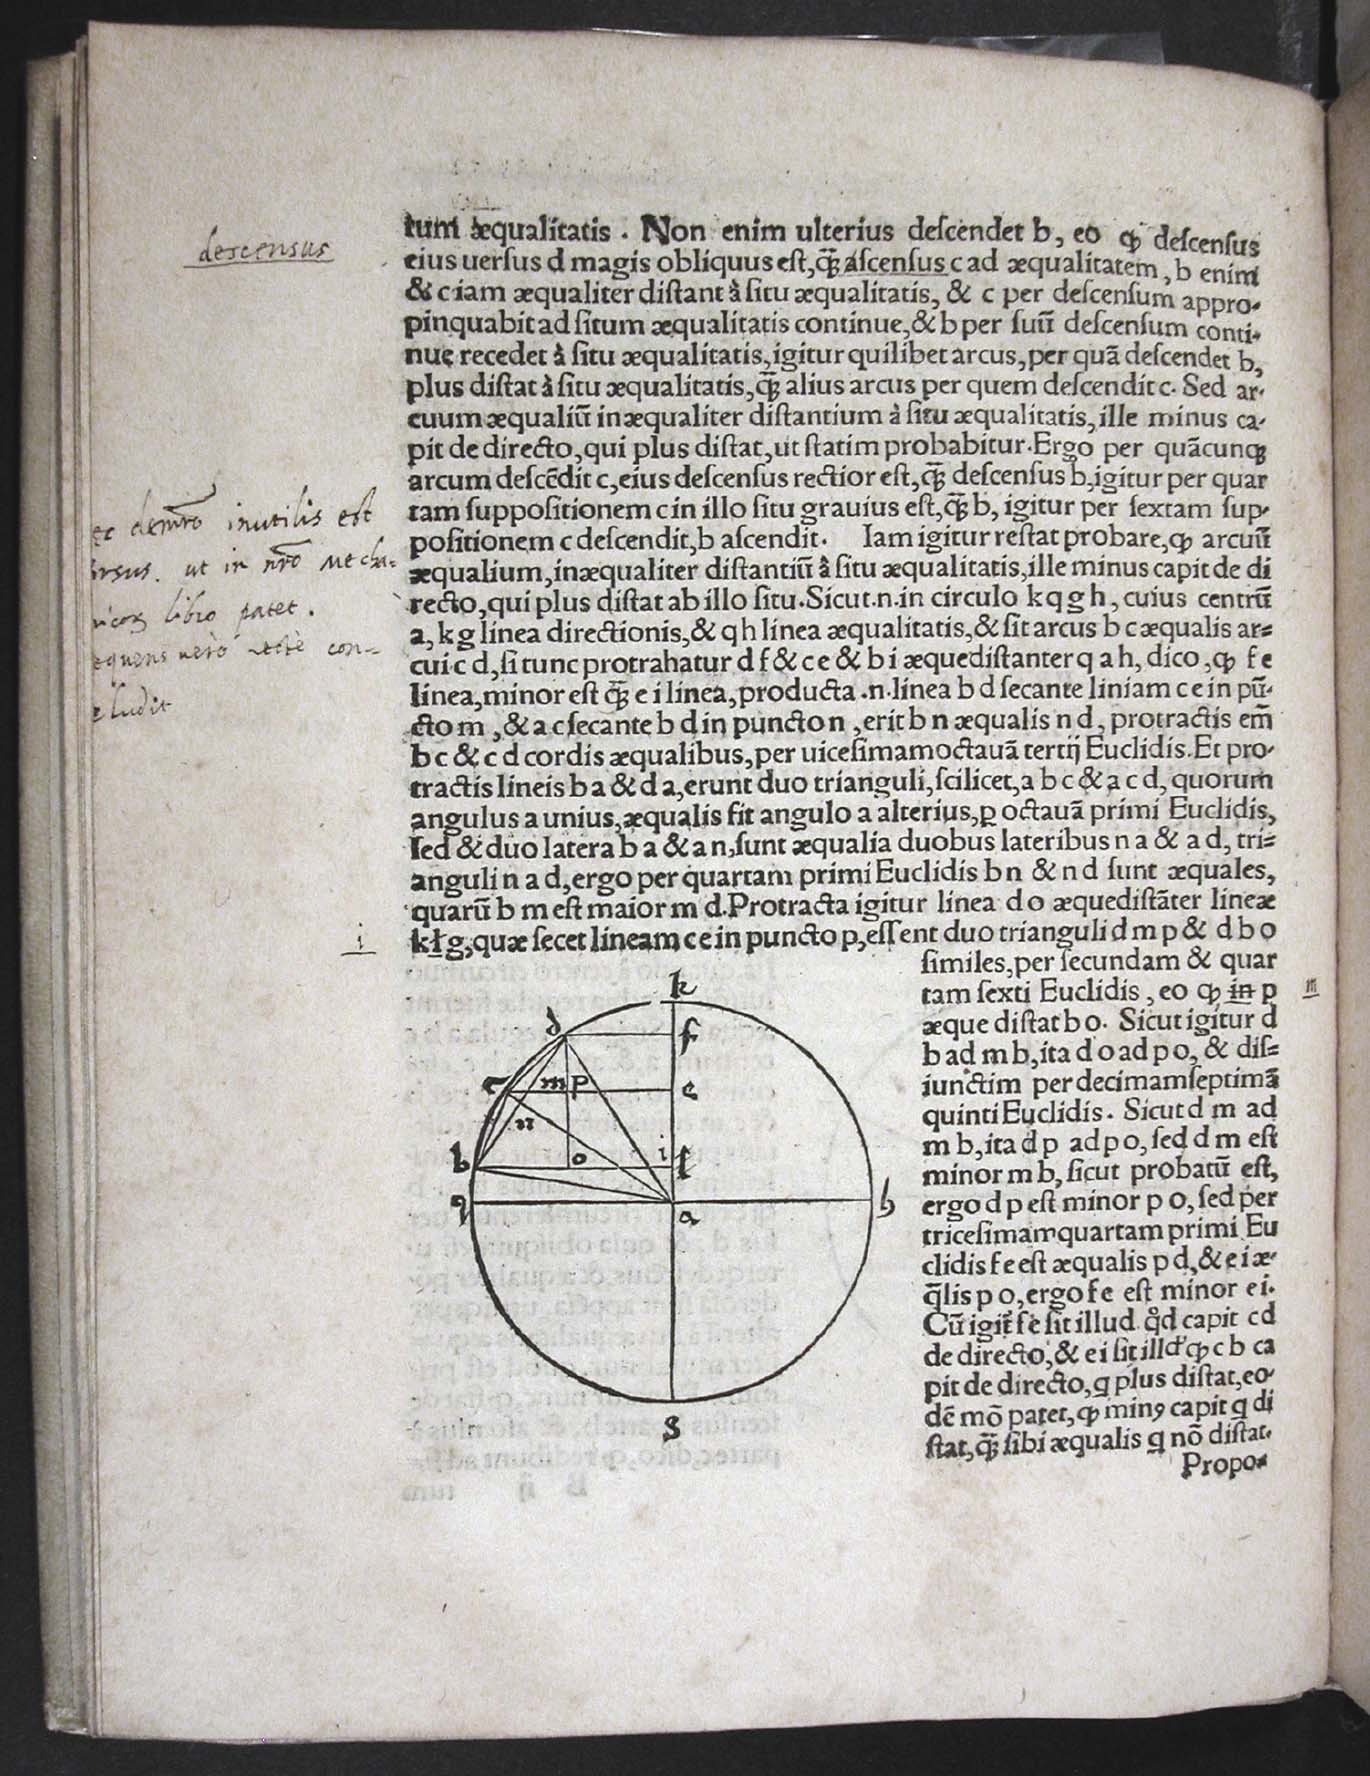 tum æqualitatis . Non enim ulterius deſcendet b, eo ꝙ deſcenſus
descensus
eius uerſus d magis obliquus eſt, q̃ꝫ aſcenſus c ad æqualitatem, b enim
& c iam æqualiter diſtant à ſitu æqualitatis, & c per deſcenſum appro-
pinquabit ad ſitum æqualitatis continue, & b per ſuũ deſcenſum conti-
nuę recedet à ſitu æqualitatis, igitur quilibet arcus, per quã deſcendet b,
plus diſtat à ſitu æqualitatis, q̃ꝫ alius arcus per quem deſcendit c. Sed ar-
cuum æqualiũ inæqualiter diſtantium à ſitu æqualitatis, ille minus ca-
pit de directo, qui plus diſtat, ut ſtatim probabitur. Ergo per quãcunqꝫ
arcum deſcẽdit c, eius deſcenſus rectior eſt, q̃ꝫ deſcenſus b, igitur per quar
tam ſuppoſitionem c in illo ſitu grauius eſt, q̃ꝫ b, igitur per ſextam ſup-
poſitionem c deſcendit, b aſcendit. Iam igitur reſtat probare, ꝙ arcuũ
æqualium, inæqualiter diſtantiũ à ſitu æqualitatis, ille minus capit de di
recto, qui plus diſtat ab illo ſitu. Sicut .n. in circulo k q g h, cuius centrũ
a, k g linea directionis, & q h linea æqualitatis, & ſit arcus b c æqualis ar=
cui c d, ſi tunc protrahatur d f & c e & b i æquediſtanter q a h, dico, ꝙ f e
linea, minor eſt q̃ꝫ e i linea, producta .n. linea b d ſecante liniam c e in pũ-
cto m , & a c ſecante b d in puncto n , erit b n æqualis n d, protractis em̃
b c & c d cordis æqualibus, per uiceſimamoctauã tertij Euclidis. Et pro-
tractis lineis b a & d a, erunt duo trianguli, ſcilicet, a b c & a c d, quorum
angulus a unius, æqualis fit angulo a alterius, ꝑ octauã primi Euclidis,
ſed & duo latera b a & a n, ſunt æqualia duobus lateribus n a & a d, tri=
anguli n a d, ergo per quartam primi Euclidis b n & n d ſunt æquales,
quarũ b m eſt maior m d. Protracta igitur linea d o æquediſtãter lineæ
k ł g, quæ ſecet lineam c e in puncto p, eſſent duo trianguli d m p & d b o
ec demrõ inutilis est
ut in nrõ mecha-
libro patet .
uerò rectè con-
cludit
i
ſimiles, per ſecundam & quar
tam ſexti Euclidis , eo ꝙ in p
m
æque diſtat b o. Sicut igitur d
b ad m b, ita d o ad p o, & diſ=
iunctim per decimamſeptimã
quinti Euclidis. Sicut d m ad
m b, ita d p ad p o, ſed d m eſt
minor m b, ſicut probatũ eſt,
ergo d p eſt minor p o, ſed per
triceſimamquartam primi Eu
clidis f e eſt æqualis p d, & e i æ-
q̃lis p o, ergo f e eſt minor e i.
Cũ igit̃ fe ſit illud q̊d capit c d
de directo, & e i ſit illd' ꝙ c b ca
pit de directo, q plus diſtat, eo-
dẽ mõ patet, ꝙ minꝰ capit q di
ſtat, q̃ꝫ ſibi æqualis q nõ diſtat.
Propo-
k
d
f
c
m
p
e
n
b
o
i
l
q
a
h
g